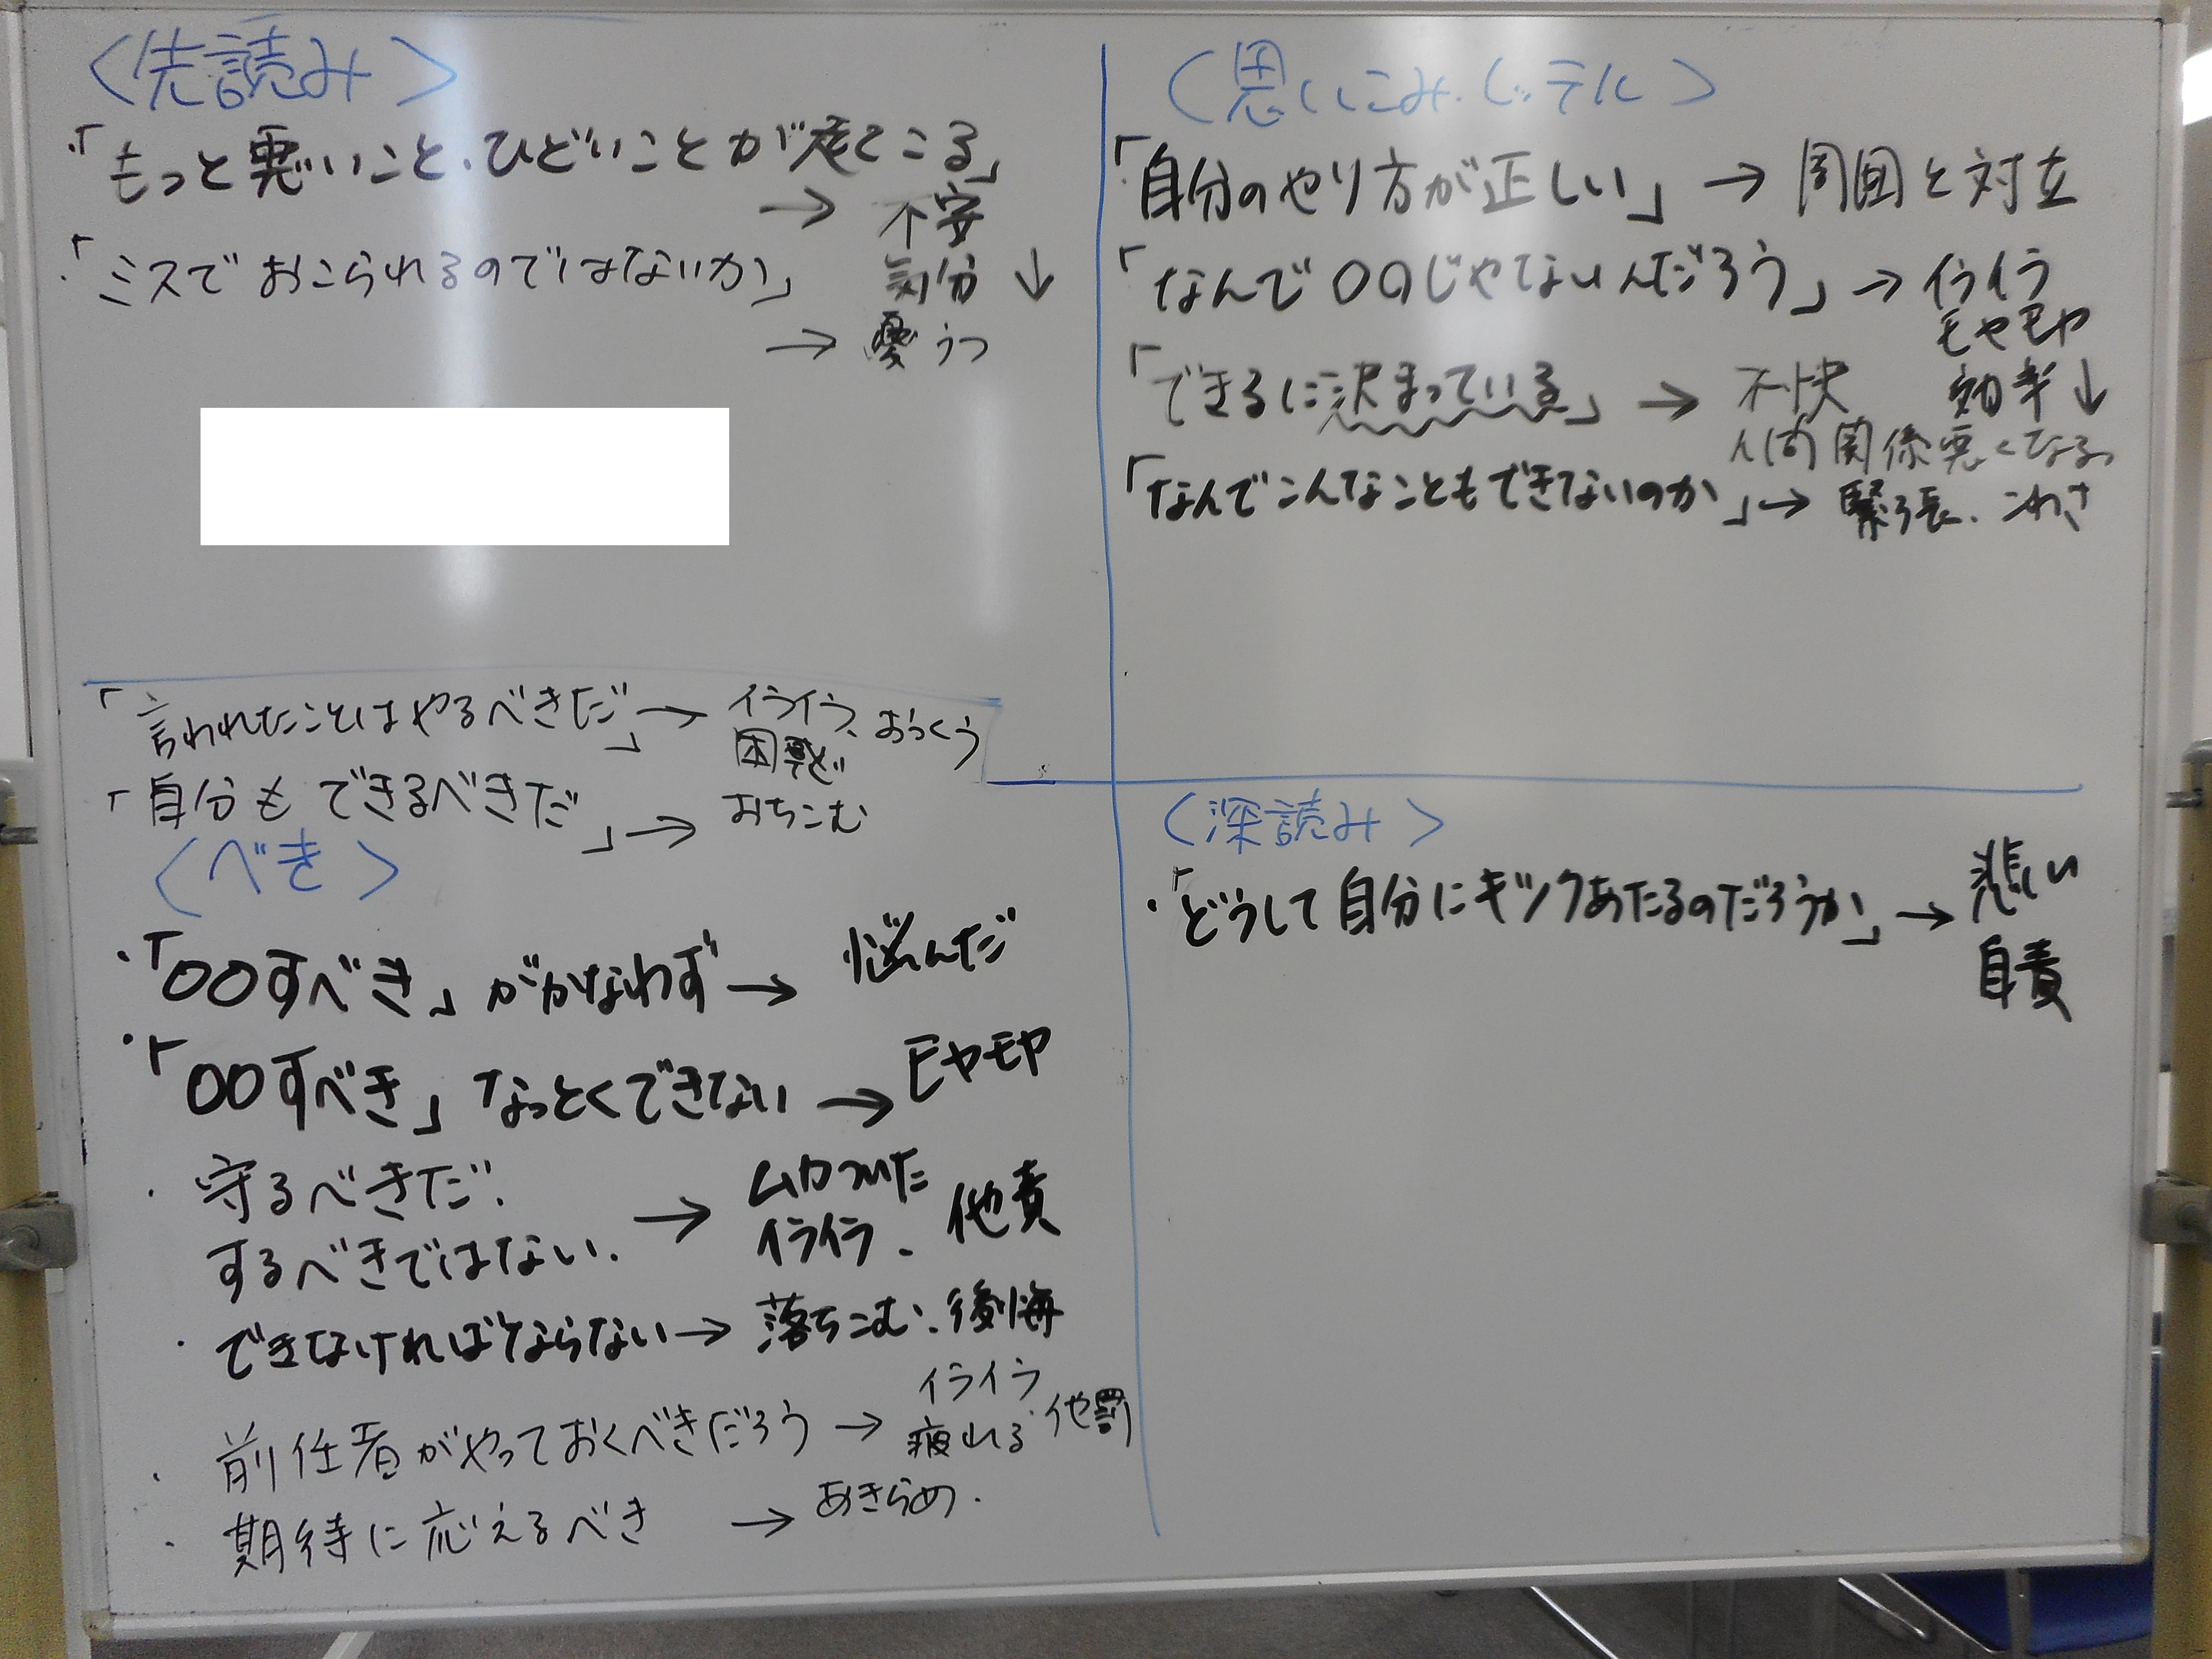 〈先読み〉
・「もっと悪いこと、ひどいことが起こる」
→ 不安
気分 ↓
・「ミスでおこられるのではないか」
→ 憂うつ
〈思いこみ・レッテル〉
「自分のやり方が正しい」→ 周囲と対立
「なんで○○じゃないんだろう」→ イライラ
モヤモヤ
効率↓
「できるに決まっている」→ 不快
人間関係悪くなる。
「なんでこんなこともできないのか」→ 緊張、こわさ
「言われたことはやるべきだ」→ イライラ、おっくう
困惑
「自分もできるべきだ」→ おちこむ
〈べき〉
・「○○すべき」がかなわず → 悩んだ
・「○○すべき」なっとくできない → モヤモヤ
・守るべきだ.
するべきではない. → ムカついた
イライラ、他責
・できなければならない → 落ちこむ、後悔
・前任者がやっておくべきだろう → イライラ
疲れる 他罰
・期待に応えるべき → あきらめ.
〈深読み〉
・「どうして自分にキツクあたるのだろうか」→ 悲しい
自責